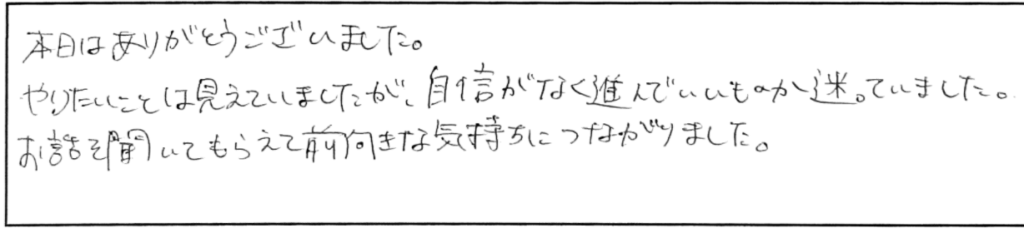 本日はありがとうございました。
やりたいことは見えていましたが、自信がなく進んでいいものか迷っていました。
お話を聞いてもらえて前向きな気持ちにつながりました。